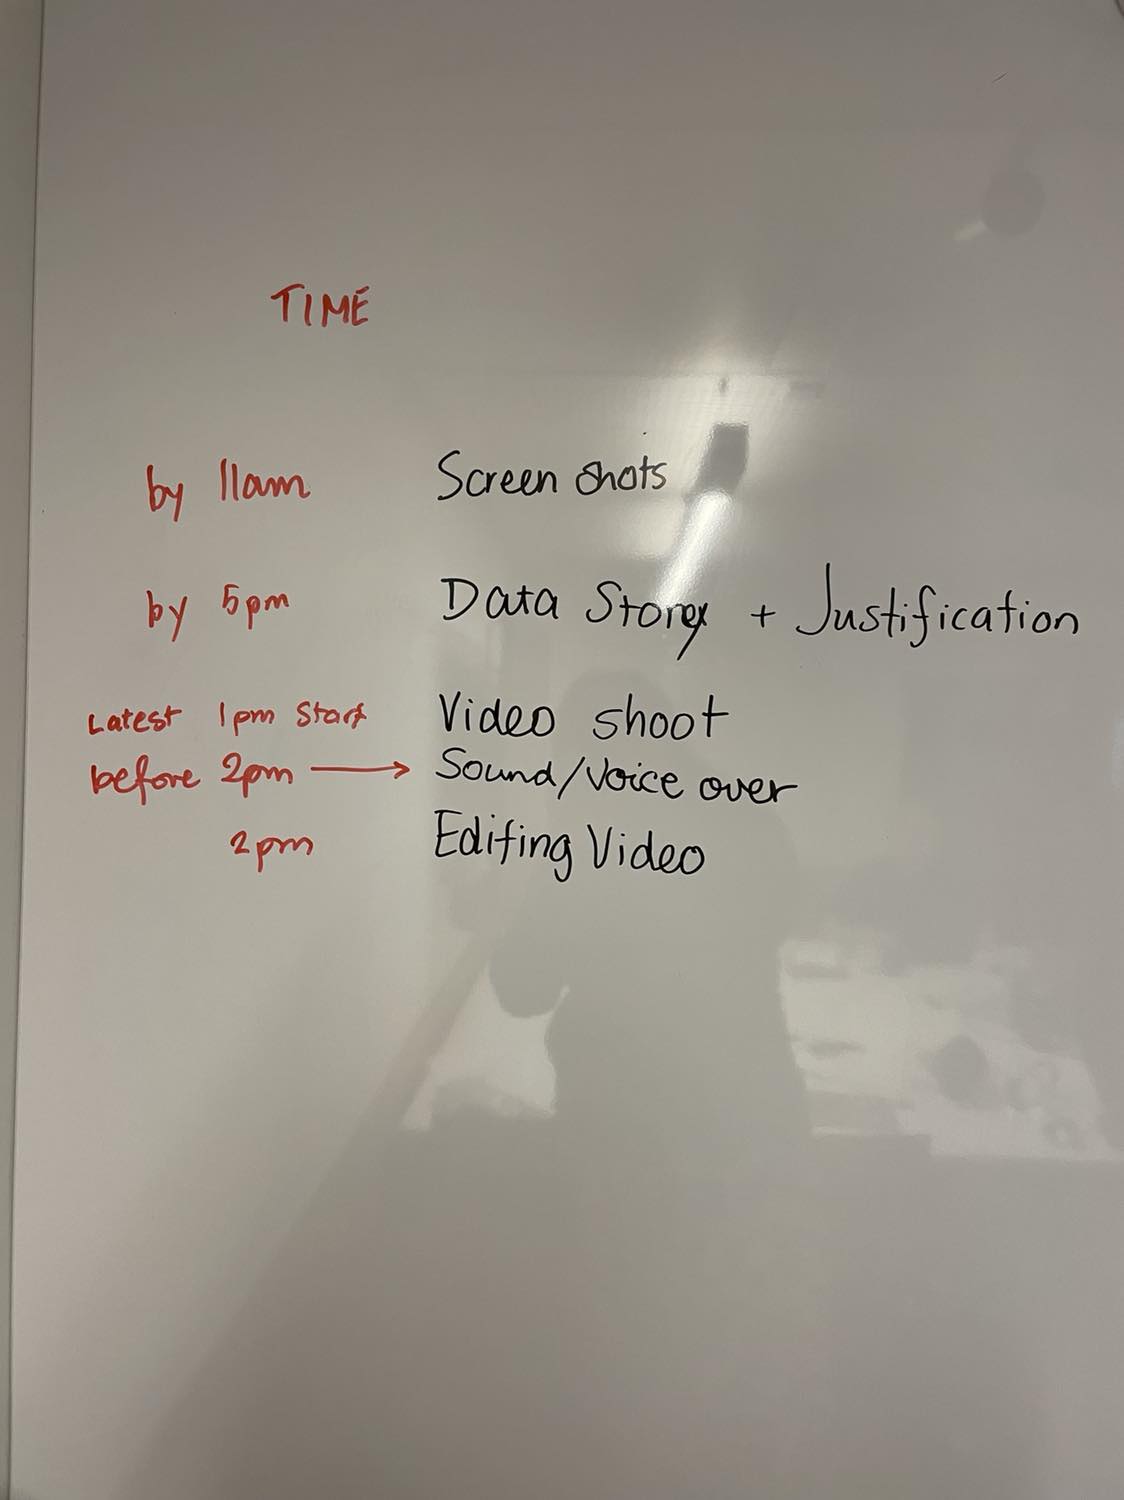 TIME
by 11am Screen shots
by 5pm Data Story + Justification
Latest 1pm Start Video shoot
before 2pm → Sound/Voice over
2pm Editing Video